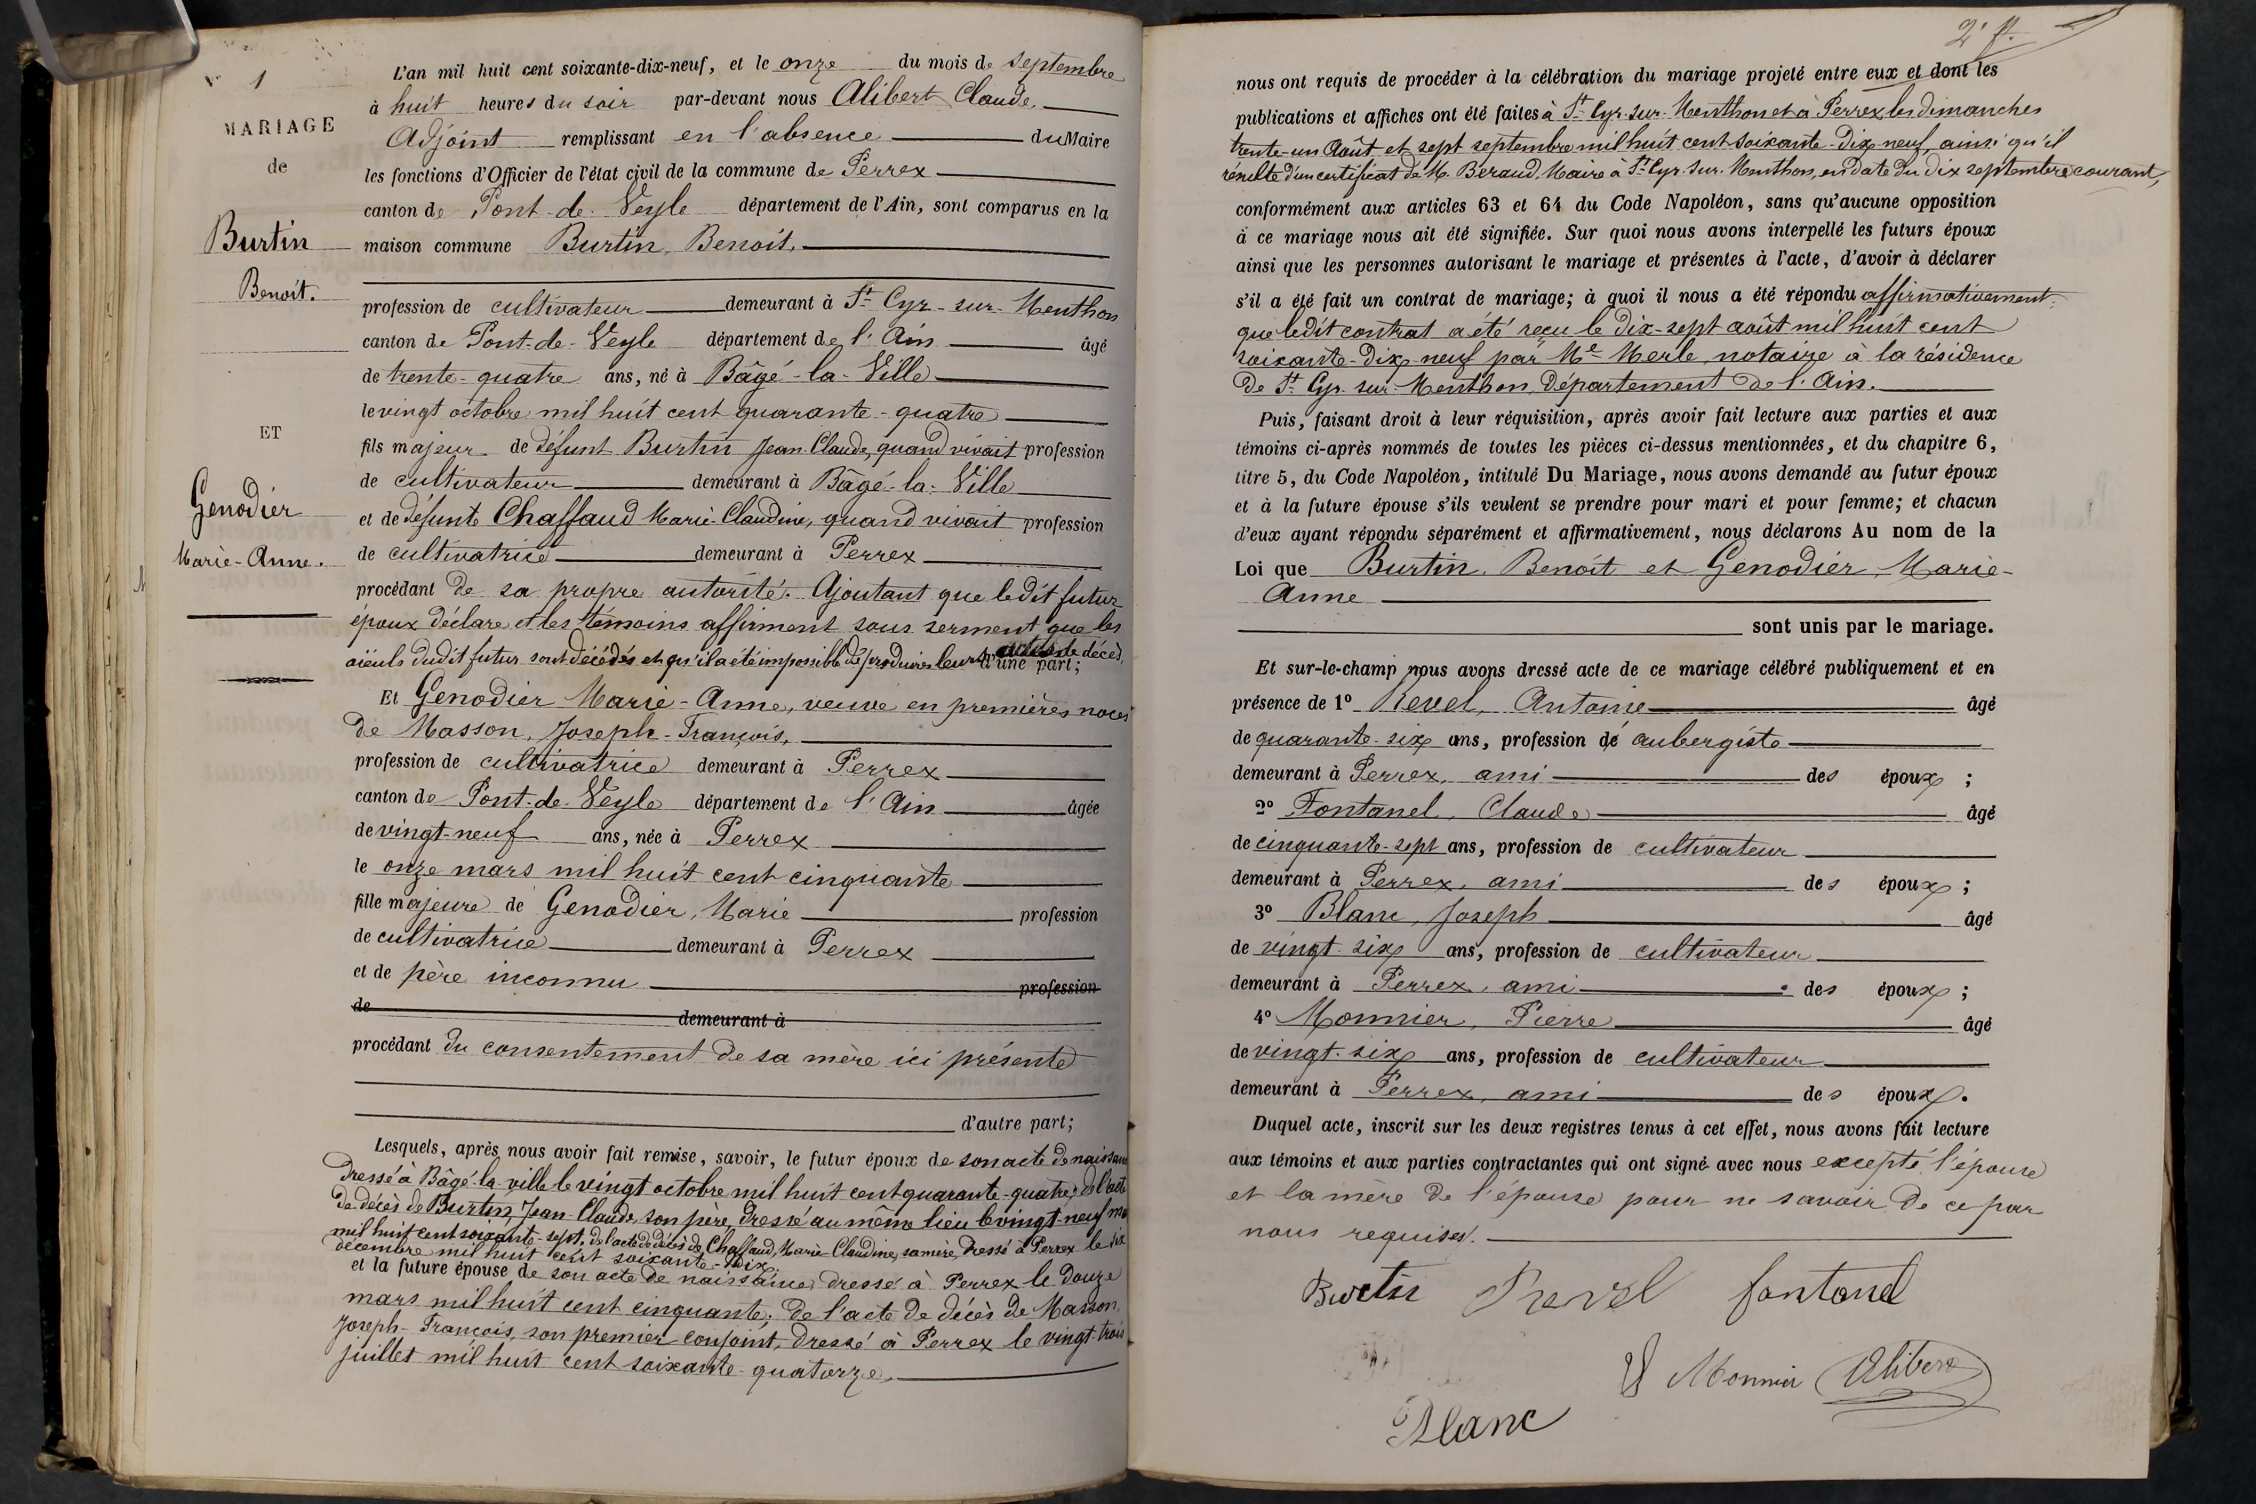 N° 1
MARIAGE
de
Burtin
Benoit.
ET
Genodier
Marie-Anne.
L'an mil huit cent soixante-dix-neuf, et le onze du mois de septembre
à huit heures du soir par-devant nous Alibert Claude,
Adjoint remplissant en l'absence du Maire
les fonctions d'Officier de l'état civil de la commune de Perrex
canton de Pont-de-Veyle département de l'Ain, sont comparus en la
maison commune Burtin, Benoit,
profession de cultivateur demeurant à St Cyr-sur-Menthon
canton de Pont-de-Veyle département de l'Ain âgé
de trente-quatre ans, né à Bâgé-la-Ville
le vingt octobre mil huit cent quarante-quatre
fils majeur de défunt Burtin Jean Claude, quand vivait profession
de cultivateur demeurant à Bâgé-la-Ville
et de défunte Chaffaud Marie-Claudine, quand vivait profession
de cultivatrice demeurant à Perrex
procédant de sa propre autorité. Ajoutant que ledit futur
époux déclare et les témoins affirment sous serment que les
aïeuls dudit futur sont décédés et qu'il a été impossible de produire leurs actes de décès,
d'une part;
Et Genodier Marie-Anne, veuve en premières noces
de Masson, Joseph-François,
profession de cultivatrice demeurant à Perrex
canton de Pont-de-Veyle département de l'Ain âgée
de vingt-neuf ans, née à Perrex
le onze mars mil huit cent cinquante
fille majeure de Genodier, Marie profession
de cultivatrice demeurant à Perrex
et de père inconnu profession
de demeurant à
procédant du consentement de sa mère ici présente
d'autre part;
Lesquels, après nous avoir fait remise, savoir, le futur époux de son acte de naissance
dressé à Bâgé-la-ville le vingt octobre mil huit cent quarante-quatre; de l'acte
de décès de Burtin, Jean-Claude, son père, dressé au même lieu le vingt-neuf mai
mil huit cent soixante-sept, de l'acte de décès de Chaffaud, Marie-Claudine, sa mère, dressé à Perrex le six
décembre mil huit cent soixante-dix.
et la future épouse de son acte de naissance dressé à Perrex le douze
mars mil huit cent cinquante; de l'acte de décès de Masson,
Joseph-François, son premier conjoint, dressé à Perrex le vingt-trois
juillet mil huit cent soixante-quatorze,
2e f.
nous ont requis de procéder à la célébration du mariage projeté entre eux et dont les
publications et affiches ont été faites à St Cyr-sur-Menthon et à Perrex les dimanches
trente-un Août et sept septembre mil huit cent soixante-dix-neuf, ainsi qu'il
résulte d'un certificat de M. Béraud, Maire à St Cyr-sur-Menthon, en date du dix septembre courant,
conformément aux articles 63 et 64 du Code Napoléon, sans qu'aucune opposition
à ce mariage nous ait été signifiée. Sur quoi nous avons interpellé les futurs époux
ainsi que les personnes autorisant le mariage et présentes à l'acte, d'avoir à déclarer
s'il a été fait un contrat de mariage; à quoi il nous a été répondu affirmativement.
que ledit contrat a été reçu le dix-sept août mil huit cent
soixante-dix-neuf par Me Merle, notaire à la résidence
de St Cyr-sur-Menthon, département de l'Ain.
Puis, faisant droit à leur réquisition, après avoir fait lecture aux parties et aux
témoins ci-après nommés de toutes les pièces ci-dessus mentionnées, et du chapitre 6,
titre 5, du Code Napoléon, intitulé Du Mariage, nous avons demandé au futur époux
et à la future épouse s'ils veulent se prendre pour mari et pour femme; et chacun
d'eux ayant répondu séparément et affirmativement, nous déclarons Au nom de la
Loi que Burtin, Benoît et Genodier, Marie-
Anne
sont unis par le mariage.
Et sur-le-champ nous avons dressé acte de ce mariage célébré publiquement et en
présence de 1° Revel, Antoine âgé
de quarante-six ans, profession de aubergiste
demeurant à Perrex, ami des époux;
2° Fontanel, Claude âgé
de cinquante-sept ans, profession de cultivateur
demeurant à Perrex, ami des époux;
3° Blanc, Joseph âgé
de vingt-six ans, profession de cultivateur
demeurant à Perrex, ami des époux;
4° Monnier, Pierre âgé
de vingt-six ans, profession de cultivateur
demeurant à Perrex, ami des époux.
Duquel acte, inscrit sur les deux registres tenus à cet effet, nous avons fait lecture
aux témoins et aux parties contractantes qui ont signé avec nous excepté l'épouse
et la mère de l'épouse pour ne savoir de ce par
nous requises.
Burtin Revel fontanel
Monnier Alibert
Blanc